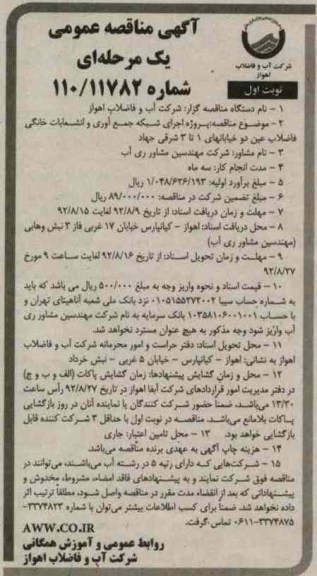 آگهی مناقصه عمومی
یک مرحله‌ای
شماره ۱۱۰/۱۱۷۸۲
شرکت آب و فاضلاب
اهواز
نوبت اول
۱ - نام دستگاه مناقصه گزار: شرکت آب و فاضلاب اهواز
۲ - موضوع مناقصه:پروژه اجرای شبکه جمع آوری و انشعابات خانگی
فاضلاب عین دو خیابانهای ۱ تا ۳ شرقی جهاد
۳ - نام مشاور: شرکت مهندسین مشاور ری آب
۴ - مدت انجام کار: سه ماه
۵ - مبلغ برآورد اولیه: ۱/۰۴۸/۶۳۶/۱۹۳ ریال
۶ - مبلغ تضمین شرکت در مناقصه: ۸۹/۰۰۰/۰۰۰ ریال
۷ - مهلت و زمان دریافت اسناد: از تاریخ ۹۲/۸/۹ لغایت ۹۲/۸/۱۵
۸ - محل دریافت اسناد: اهواز - کیانپارس خیابان ۱۷ غربی فاز ۳ نبش وهابی
(مهندسین مشاور ری آب)
۹ - مهلت و زمان تحویل اسناد: از تاریخ ۹۲/۸/۱۶ لغایت ساعت ۹ مورخ
۹۲/۸/۲۷
۱۰ - قیمت اسناد و نحوه واریز وجه به مبلغ ۵۰۰/۰۰۰ ریال می باشد که باید
به شماره حساب سیبا ۰۱۰۵۱۵۵۲۷۲۰۰۲ نزد بانک ملی شعبه آناهیتای تهران و
یا حساب ۱۰۳۵۸۱۰۶۰۰۱۰۰۱ بانک سرمایه به نام شرکت مهندسین مشاور ری
آب واریز شود وجه مذکور به هیچ عنوان مسترد نخواهد شد.
۱۱ - محل تحویل اسناد: دفتر حراست و امور محرمانه شرکت آب و فاضلاب
اهواز به نشانی: اهواز - کیانپارس - خیابان ۵ غربی - نبش خرداد
۱۲ - محل و زمان گشایش پیشنهادها: زمان گشایش پاکات (الف و ب و ج)
در دفتر مدیریت امور قراردادهای شرکت آبفا اهواز در تاریخ ۹۲/۸/۲۷ رأس ساعت
۱۳/۳۰ می‌باشد، ضمناً حضور شرکت کنندگان یا نماینده آنان در روز بازگشایی
پاکات بلامانع می‌باشد. مناقصه در نوبت اول با حداقل ۳ شرکت کننده قابل
بازگشایی خواهد بود. ۱۳ - محل تامین اعتبار: جاری
۱۴ - هزینه چاپ آگهی به عهدی برنده مناقصه می‌باشد.
۱۵ - شرکت‌هایی که دارای رتبه ۵ در رشته آب می‌باشند، می‌توانند در
مناقصه فوق شرکت نمایند و به پیشنهادهای فاقد امضاء، مشروط، مخدوش و
پیشنهاداتی که بعد از انقضاء مدت مقرر در مناقصه واصل شود، مطلقاً ترتیب اثر
داده نخواهد شد. ضمناً برای کسب اطلاعات بیشتر می‌توان با شماره ۳۳۷۴۸۲۳-
۳۳۷۴۸۷۵-۰۶۱۱ تماس گرفت.
AWW.CO.IR
روابط عمومی و آموزش همگانی
شرکت آب و فاضلاب اهواز